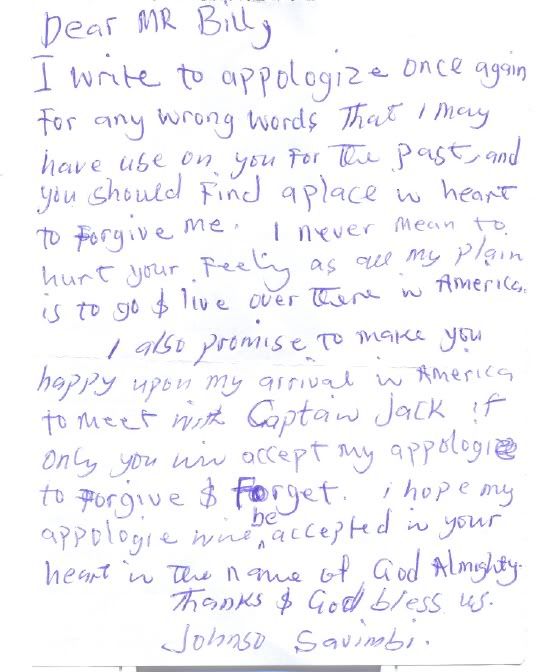 Dear MR Billy
I write to appologize once again
For any wrong words That I may
have use on you For The past, and
you should Find a place in heart
to Forgive me. I never mean to
hurt your Feelig as all my plain
is to go $ live over There in America.
I also promise to make you
happy upon my arrival in America
to meet with Captain Jack if
only you will accept my appologie
to Forgive $ Forget. i hope my
appologie will be accepted in your
heart in The name of God Almighty.
Thanks $ God bless us.
Johnso Savimbi.